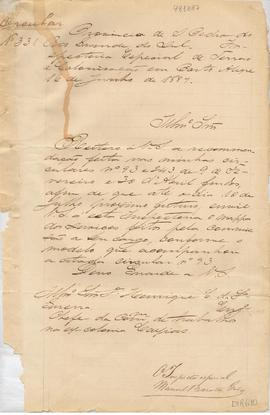 Circular
Nº 331
Provincia de S. Pedro do
Rio Grande do Sul. Ins-
pectoria Especial de Terras
e Colonisação em Porto Alegre
de Junho de 1887.
Illmo. Snr.
Reitero a V.S. a recommen-
dação feita nas minhas cir-
culares nos 93 e 243 de 9 de Fe-
vereiro e 30 d'Abril findos
afim de que até o dia 10 de
Julho proximo futuro envie
V.S. a esta Inspectoria o mappa
do serviços feitos pela commis-
são a seu cargo, conforme o
modelo que acompanhou
a citada circular nº 93.
Deus Guarde a V.S.
Illmo. Snr. Dr. Henrique
Chefe da Comm. de trabalhos
na ex colonia Caxias
O Inspector especial
Manoel